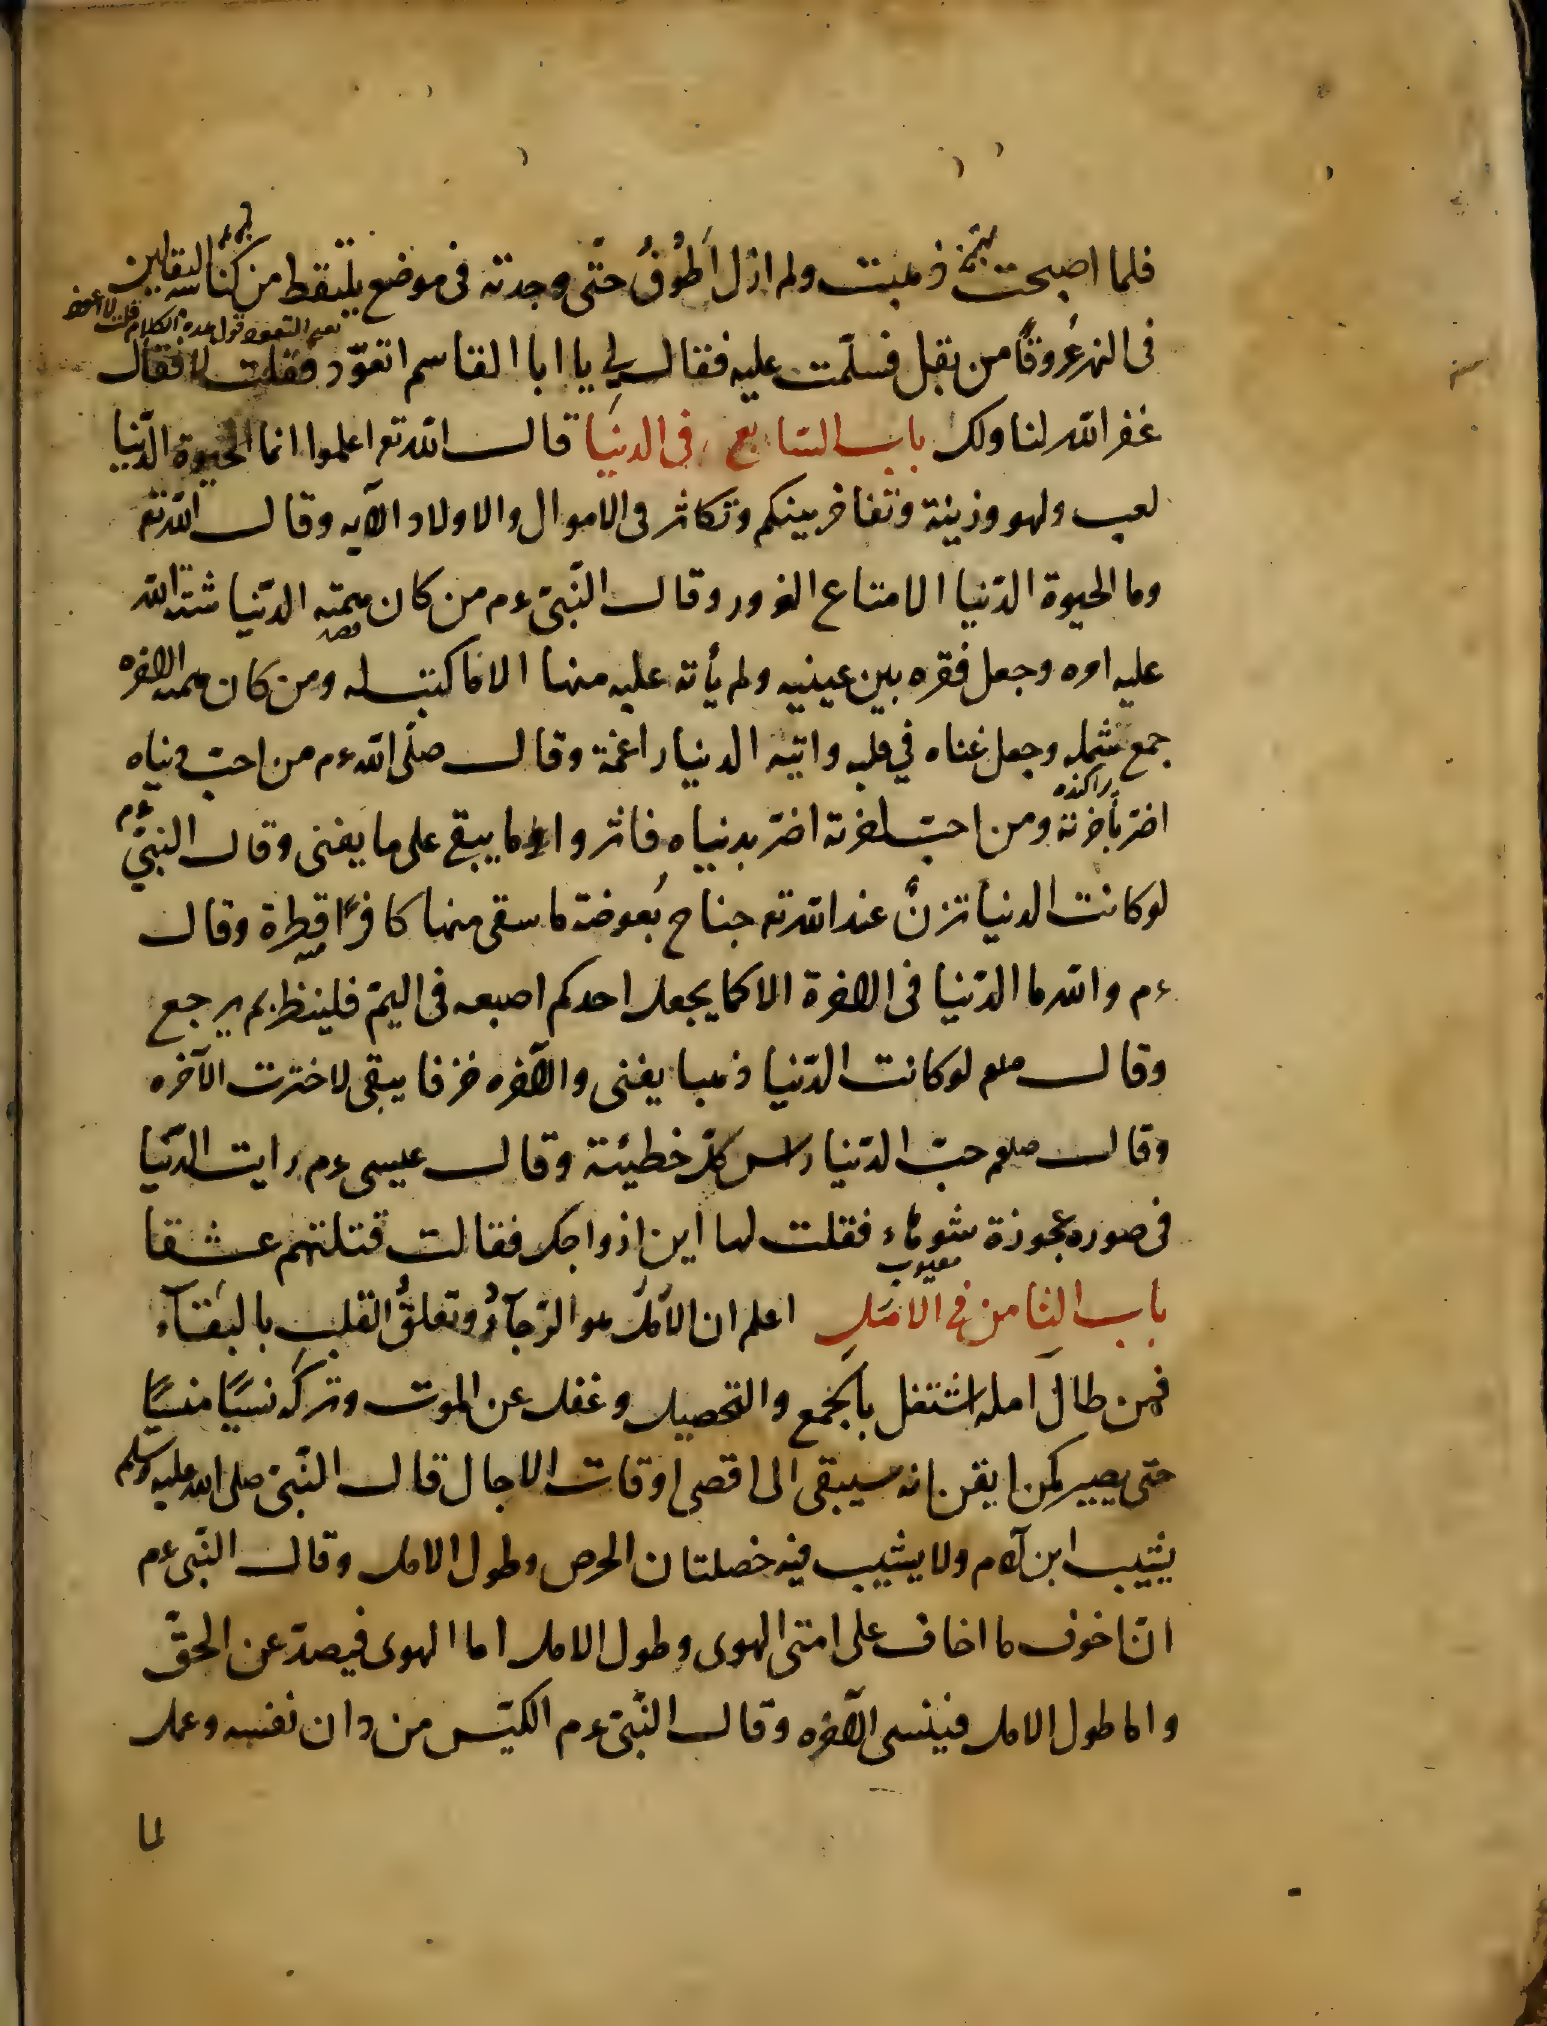 فلما اصبحت ذهبت ولم ازل اَطُوفُ حتّى وجدته فى موضع يلتقط من كناسه البقالين
فى النهر عُروقًا من بقل فسلّمت عليه فقال لى يا ابا القاسم اتعوّد فقلت لا فقال
غفر الله لنا ولك باب السّابع فى الدنيَا قال الله تع اعلموا انما الحيوة الدّنيا
لعب ولهو وزينة وتفاخر بينكم وتكاثر فى الاموال والاولاد الآيه وقال الله تع
وما الحيوة الدّنيا الا متاع الغرور وقال النّبىّ ءم من كان همته الدّنيا شتت الله
قصد
عليه امره وجعل فقره بين عينيه ولم يأته عليه منها الا ما كتب له ومن كان همته الاخره
جمع شمله وجعل غناه فى قلبه واتيه الدنيا راغمة وقال صلّى الله ءم من احبّ دنياه
پراكنده
اضرّ بأخرته ومن احبّ اخرته اضرّ بدنياه فاثروا ما يبقى على ما يفنى وقال النبىّ ءم
لو كانت الدنيا تزنُ عند الله تع جناح بَعوضة ما سقى منها كافرًا قطرة وقال
ءم والله ما الدّنيا فى الاخرة الا كما يجعل احدكم اصبعه فى اليمّ فلينظر بم يرجع
وقال صلعم لو كانت الدّنيا ذهبا يفنى والآخره خزفا يبقى لاخترت الآخره
وقال صلعم حبّ الدّنيا راس كلّ خطيئة وقال عيسى ءم رايت الدّنيا
فى صوره عجوزة شوهاء فقلت لها اين ازواجك فقالت قتلتهم عشقا
معيوب
باب الثامن فى الامَل اعلم ان الاَمَل هو الرّجآءُ وتعلقُ القلب بالبَقآء
فمن طالَ امله اشتغل بالجمع والتحصيل وغفل عن الموت وتركه نسيًا منسيًا
حتى يصير كمن ايقن انه سيبقى الى اقصى اوقات الاجال قال النّبىّ صلى الله عليه وسلم
يشيب ابن آدم ولا يشيب فيه خصلتان الحرص وطول الامل وقال النّبى ءم
انّ اخوف ما اخاف على امتى الهوى وطول الامل اما الهوى فيصدّ عن الحقّ
واما طول الامل فينسى الآخره وقال النّبىّ ءم الكيّس من دان نفسه وعمل
لما